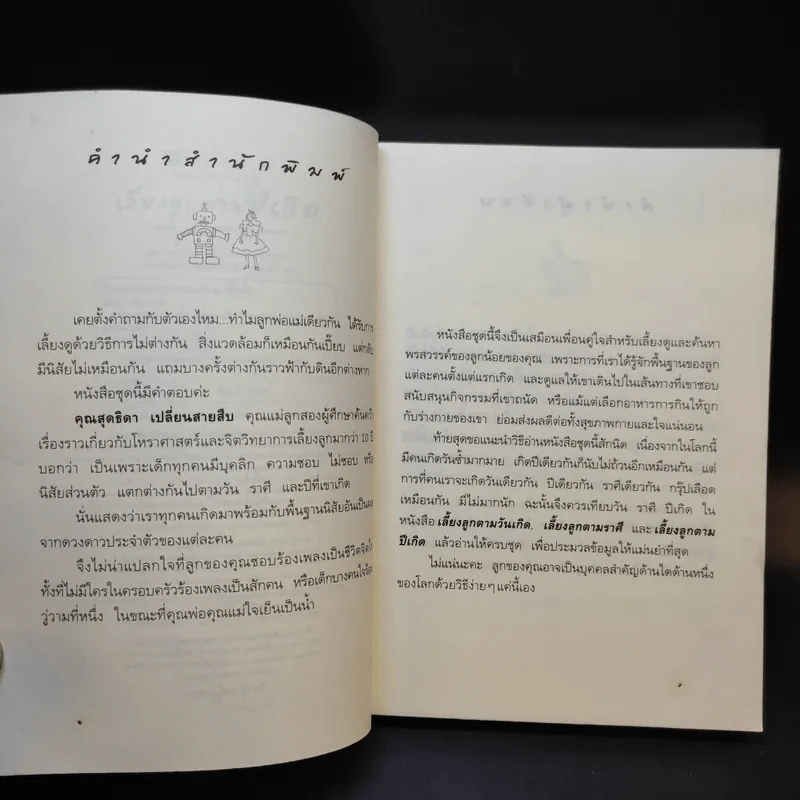 คำนำสำนักพิมพ์
เคยตั้งคำถามกับตัวเองไหม...ทำไมลูกพ่อแม่เดียวกัน ได้รับการ
เลี้ยงดูด้วยวิธีการไม่ต่างกัน สิ่งแวดล้อมก็เหมือนกันเปี๊ยบ แต่กลับ
มีนิสัยไม่เหมือนกัน แถมบางครั้งต่างกันราวฟ้ากับดินอีกต่างหาก
หนังสือชุดนี้มีคำตอบค่ะ
คุณสุดธิดา เปลี่ยนสายสืบ คุณแม่ลูกสองผู้ศึกษาค้นคว้า
เรื่องราวเกี่ยวกับโหราศาสตร์และจิตวิทยาการเลี้ยงลูกมากว่า 10 ปี
บอกว่า เป็นเพราะเด็กทุกคนมีบุคลิก ความชอบ ไม่ชอบ หรือ
นิสัยส่วนตัว แตกต่างกันไปตามวัน ราศี และปีที่เขาเกิด
นั่นแสดงว่าเราทุกคนเกิดมาพร้อมกับพื้นฐานนิสัยอันเป็นผล
จากดวงดาวประจำตัวของแต่ละคน
จึงไม่น่าแปลกใจที่ลูกของคุณชอบร้องเพลงเป็นชีวิตจิตใจ
ทั้งที่ไม่มีใครในครอบครัวร้องเพลงเป็นสักคน หรือเด็กบางคนใจร้อน
วู่วามที่หนึ่ง ในขณะที่คุณพ่อคุณแม่ใจเย็นเป็นน้ำ
หนังสือชุดนี้จึงเป็นเสมือนเพื่อนคู่ใจสำหรับเลี้ยงดูและค้นหา
พรสวรรค์ของลูกน้อยของคุณ เพราะการที่เราได้รู้จักพื้นฐานของลูก
แต่ละคนตั้งแต่แรกเกิด และดูแลให้เขาเดินไปในเส้นทางที่เขาชอบ
สนับสนุนกิจกรรมที่เขาถนัด หรือแม้แต่เลือกอาหารการกินให้ถูก
กับร่างกายของเขา ย่อมส่งผลดีต่อทั้งสุขภาพกายและใจแน่นอน
ท้ายสุดขอแนะนำวิธีอ่านหนังสือชุดนี้สักนิด เนื่องจากในโลกนี้
มีคนเกิดวันซ้ำมากมาย เกิดปีเดียวกันก็นับไม่ถ้วนอีกเหมือนกัน แต่
การที่คนเราจะเกิดวันเดียวกัน ปีเดียวกัน ราศีเดียวกัน กรุ๊ปเลือด
เหมือนกัน มีไม่มากนัก ฉะนั้นจึงควรเทียบวัน ราศี ปีเกิด ใน
หนังสือ เลี้ยงลูกตามวันเกิด, เลี้ยงลูกตามราศี และ เลี้ยงลูกตาม
ปีเกิด แล้วอ่านให้ครบชุด เพื่อประมวลข้อมูลให้แม่นยำที่สุด
ไม่แน่นะคะ ลูกของคุณอาจเป็นบุคคลสำคัญด้านใดด้านหนึ่ง
ของโลกด้วยวิธีง่ายๆ แค่นี้เอง